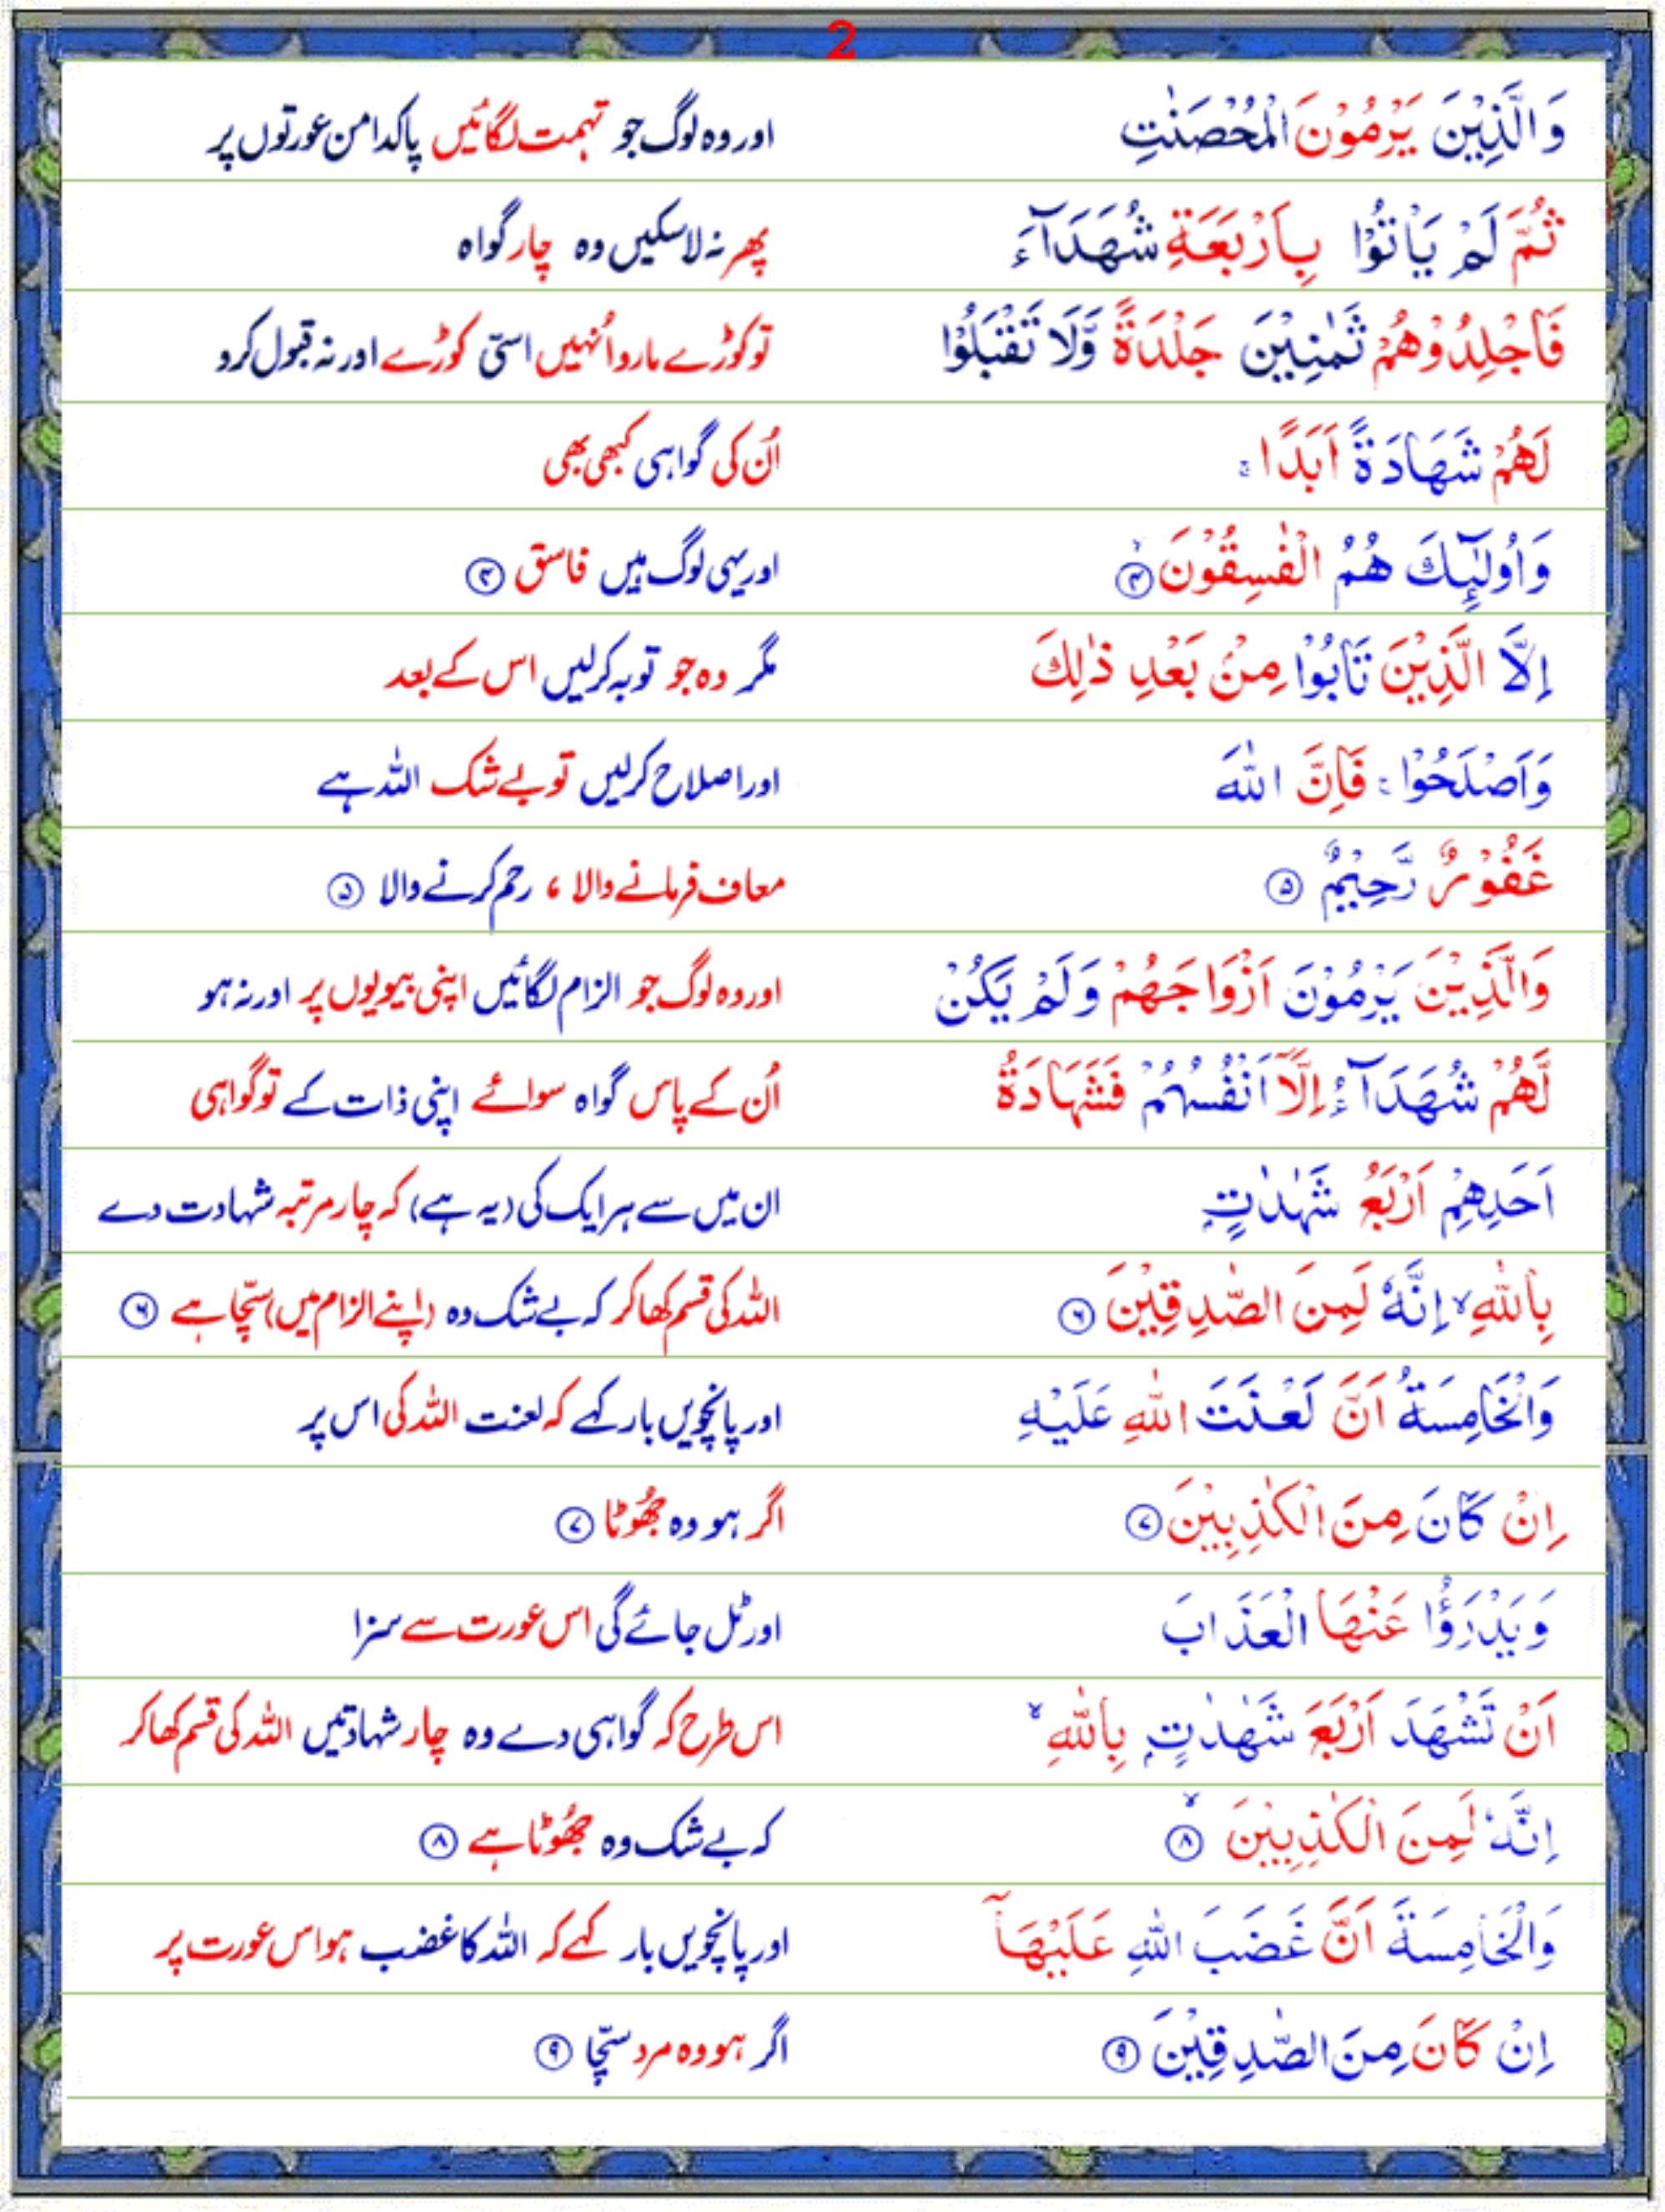 2
وَالَّذِيْنَ يَرْمُوْنَ الْمُحْصَنٰتِ اور وہ لوگ جو تہمت لگائیں پاکدامن عورتوں پر
ثُمَّ لَمْ يَاْتُوْا بِاَرْبَعَةِ شُهَدَآءَ پھر نہ لاسکیں وہ چار گواہ
فَاجْلِدُوْهُمْ ثَمٰنِيْنَ جَلْدَةً وَّلَا تَقْبَلُوْا تو کوڑے مارو اُنہیں اسّی کوڑے اور نہ قبول کرو
لَهُمْ شَهَادَةً اَبَدًا ۚ اُن کی گواہی کبھی بھی
وَاُولٰٓئِكَ هُمُ الْفٰسِقُوْنَ ۙ۴ اور یہی لوگ ہیں فاسق ۴
اِلَّا الَّذِيْنَ تَابُوْا مِنْۢ بَعْدِ ذٰلِكَ مگر وہ جو توبہ کرلیں اس کے بعد
وَاَصْلَحُوْا ۚ فَاِنَّ اللّٰهَ اور اصلاح کرلیں تو بے شک اللہ ہے
غَفُوْرٌ رَّحِيْمٌ ۵ معاف فرمانے والا ، رحم کرنے والا ۵
وَالَّذِيْنَ يَرْمُوْنَ اَزْوَاجَهُمْ وَلَمْ يَكُنْ اور وہ لوگ جو الزام لگائیں اپنی بیویوں پر اور نہ ہو
لَّهُمْ شُهَدَآءُ اِلَّآ اَنْفُسُهُمْ فَشَهَادَةُ اُن کے پاس گواہ سوائے اپنی ذات کے تو گواہی
اَحَدِهِمْ اَرْبَعُ شَهٰدٰتٍۭ ان میں سے ہر ایک کی (یہ ہے) کہ چار مرتبہ شہادت دے
بِاللّٰهِ ۙ اِنَّهٗ لَمِنَ الصّٰدِقِيْنَ ۶ اللہ کی قسم کھا کر کہ بے شک وہ (اپنے الزام میں) سچّا ہے ۶
وَالْخَامِسَةُ اَنَّ لَعْنَتَ اللّٰهِ عَلَيْهِ اور پانچویں بار کہے کہ لعنت اللہ کی اس پر
اِنْ كَانَ مِنَ الْكٰذِبِيْنَ ۷ اگر ہو وہ جھُوٹا ۷
وَيَدْرَؤُا عَنْهَا الْعَذَابَ اور ٹل جائے گی اس عورت سے سزا
اَنْ تَشْهَدَ اَرْبَعَ شَهٰدٰتٍۭ بِاللّٰهِ ۙ اس طرح کہ گواہی دے وہ چار شہادتیں اللہ کی قسم کھا کر
اِنَّهٗ لَمِنَ الْكٰذِبِيْنَ ۙ۸ کہ بے شک وہ جھُوٹا ہے ۸
وَالْخَامِسَةَ اَنَّ غَضَبَ اللّٰهِ عَلَيْهَآ اور پانچویں بار کہے کہ اللہ کا غضب ہو اس عورت پر
اِنْ كَانَ مِنَ الصّٰدِقِيْنَ ۹ اگر ہو وہ مرد سچّا ۹